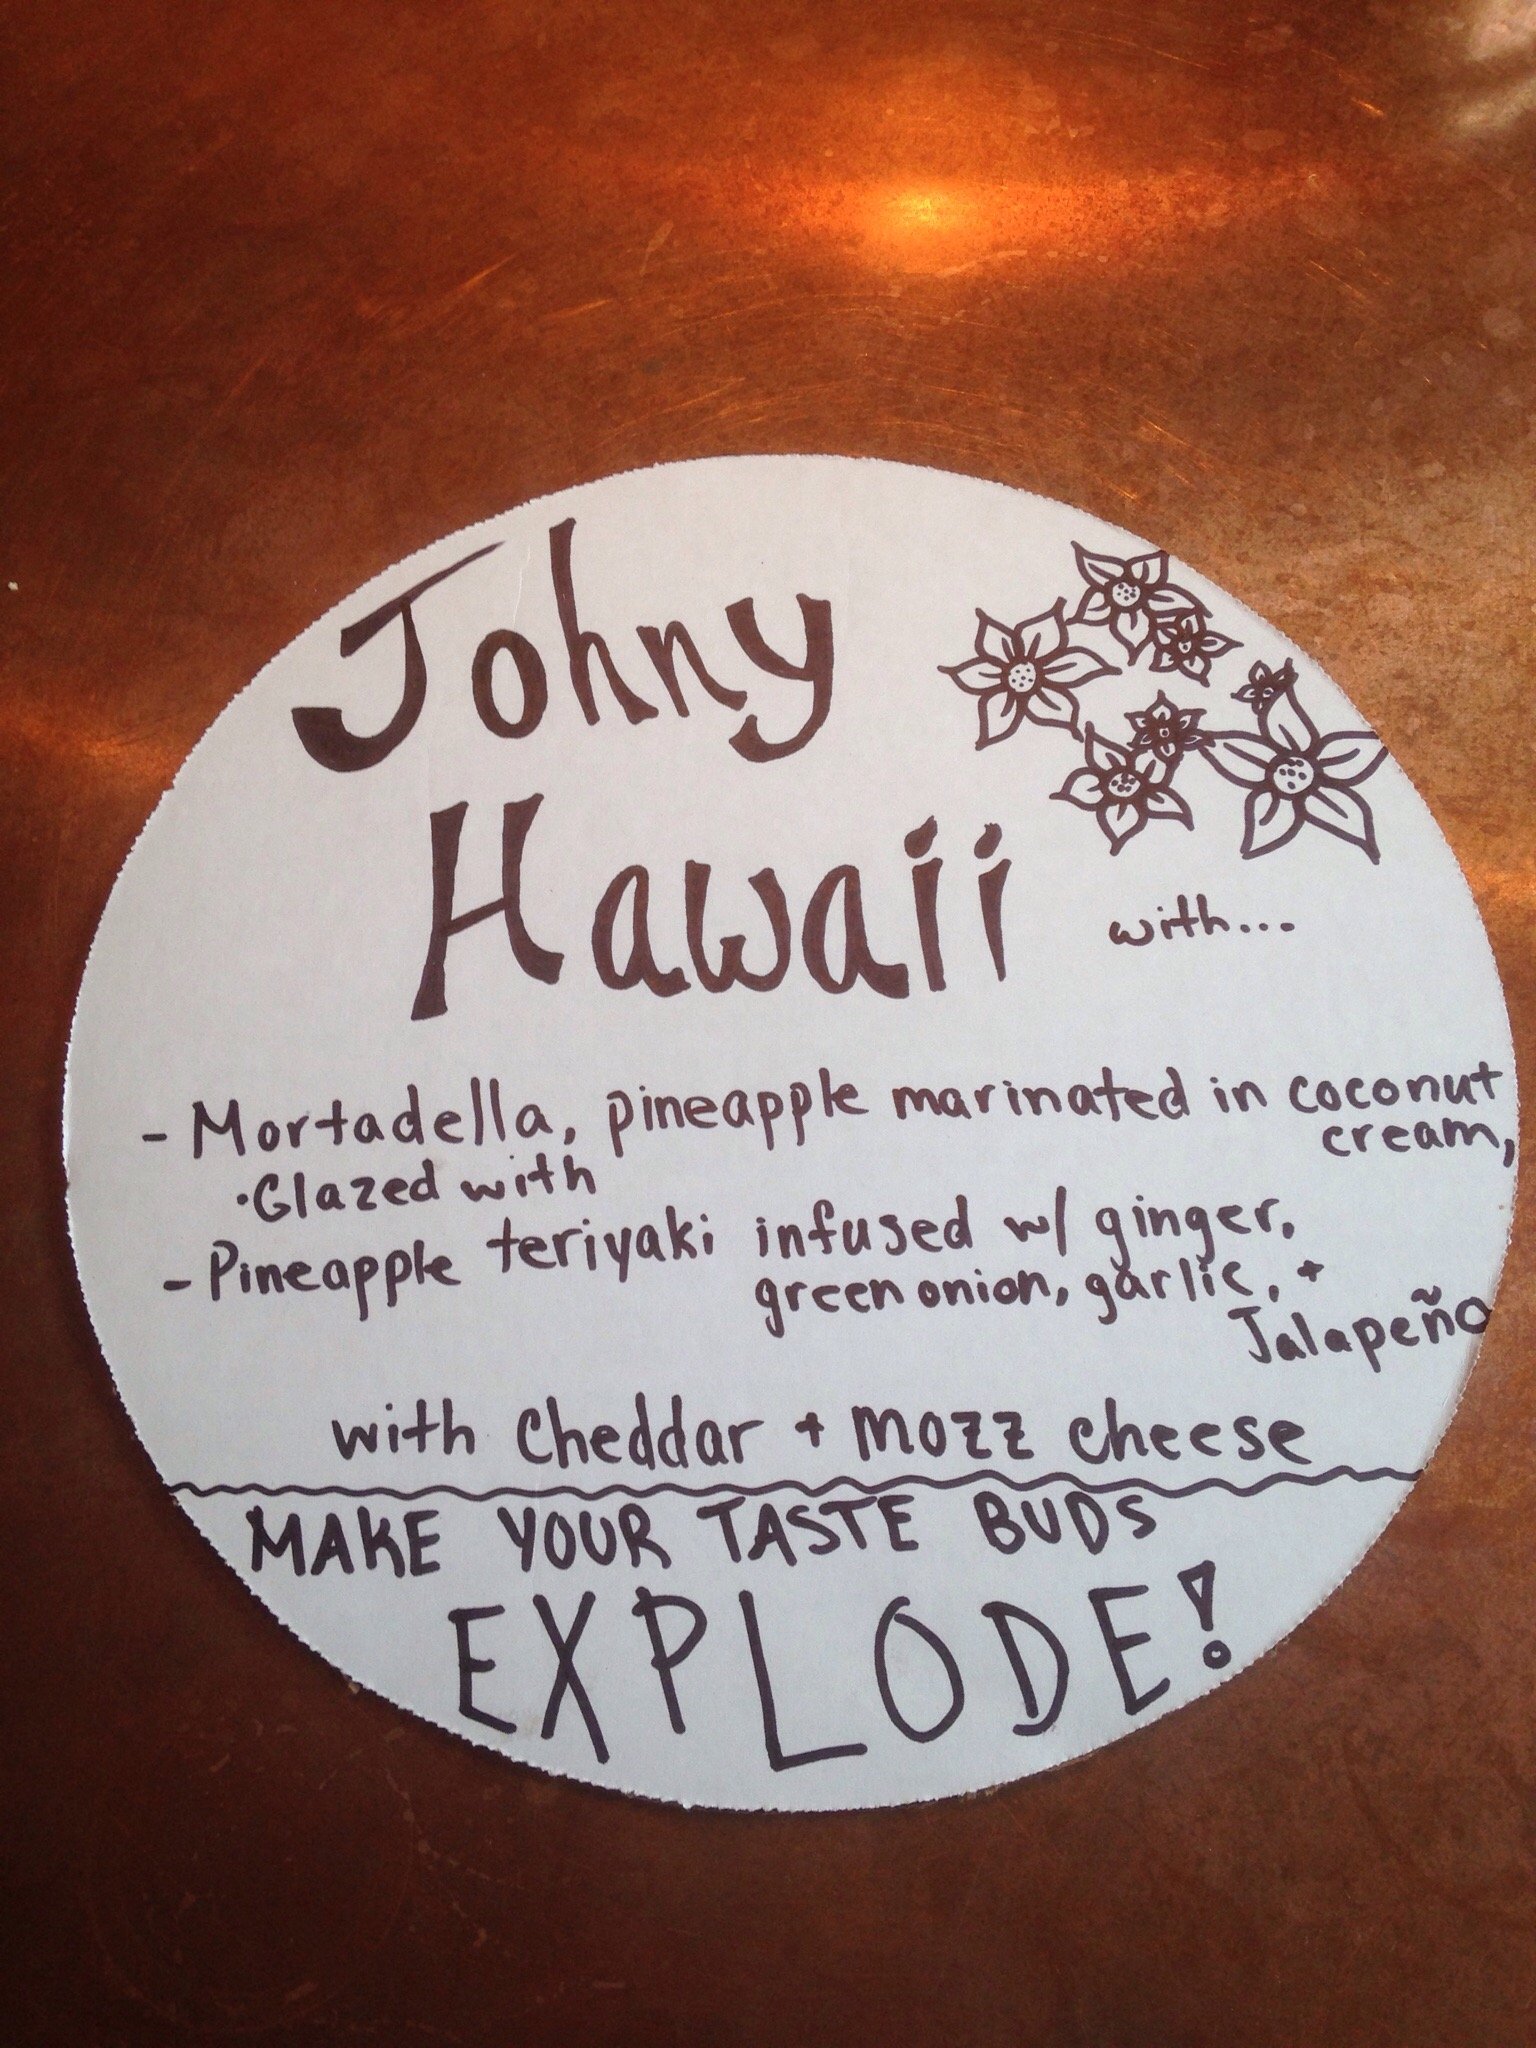 Johny
Hawaii
with...
- Mortadella, pineapple marinated in coconut
cream,
·Glazed with
- Pineapple teriyaki infused w/ ginger,
green onion, garlic, +
Jalapeño
with cheddar + mozz cheese
MAKE YOUR TASTE BUDS
EXPLODE!